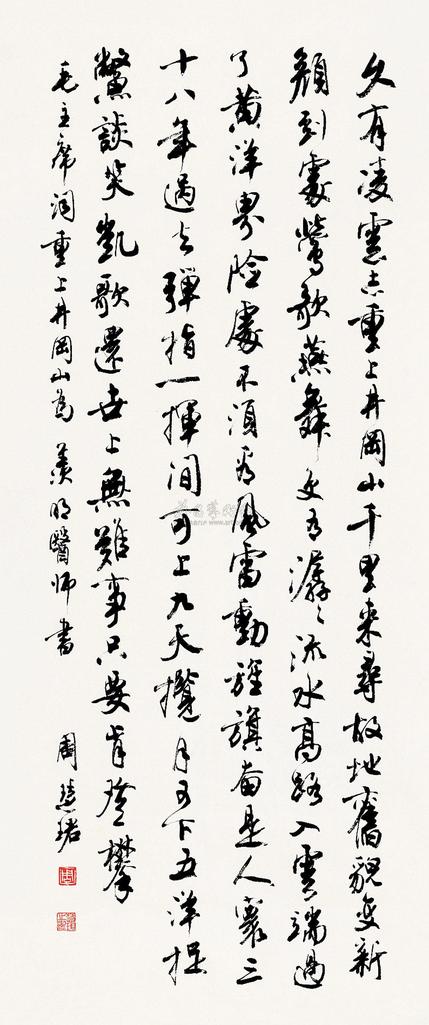 久有凌雲志重上井岡山千里來尋故地舊貌變新
顏到處鶯歌燕舞更有潺〻流水高路入雲端過
了黃洋界險處不須看風雷動旌旗奮是人寰三
十八年過去彈指一揮間可上九天攬月可下五洋捉
鱉談笑凱歌還世上無難事只要肯登攀
毛主席詞重上井岡山為 羨明醫師書 周慧珺